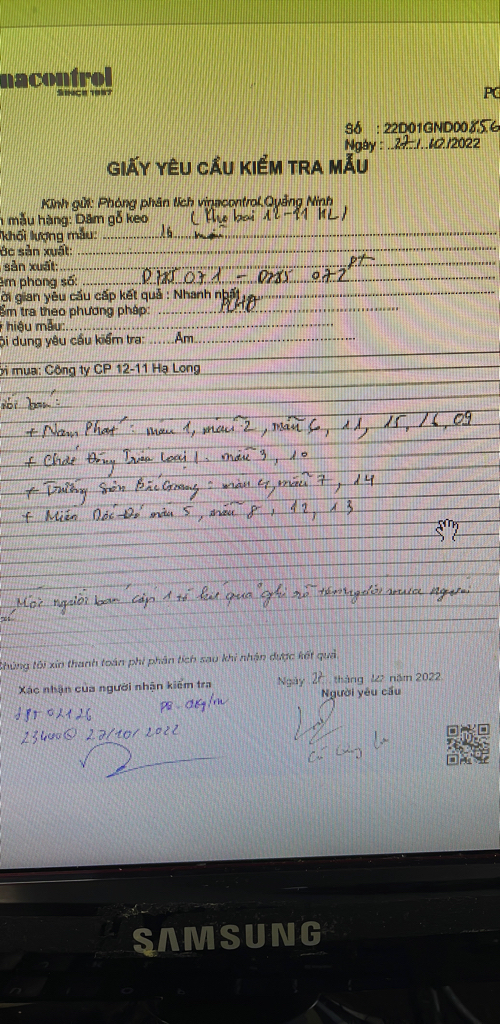 nacontrol
SINCE 1957
PC
Số : 22D01GND00856
Ngày : 27/10/2022
GIẤY YÊU CẦU KIỂM TRA MẪU
Kính gửi: Phòng phân tích vinacontrol Quảng Ninh
mẫu hàng: Dăm gỗ keo
khối lượng mẫu: 16 mẫu
ớc sản xuất:
sản xuất:
êm phong số: 0785 071 - 0785 072
ời gian yêu cầu cấp kết quả : Nhanh nhất
ểm tra theo phương pháp:
hiệu mẫu:
ội dung yêu cầu kiểm tra: Ẩm
ời mua: Công ty CP 12-11 Hạ Long
bán:
+ Nam Phát: mẫu 1, mẫu 2, mẫu 6, 11, 15, 16, 09
+ mẫu 3, 10
+ Trường Sơn Bắc Giang: mẫu 4, mẫu 7, 14
+ mẫu 5, mẫu 8, 12, 13
Mỗi người bán cấp 1 tờ kết quả ghi rõ tên người mua người
húng tôi xin thanh toán phí phân tích sau khi nhận được kết quả.
Xác nhận của người nhận kiểm tra
Ngày 27 tháng 10 năm 2022
Người yêu cầu
02126
27/10/2022
SAMSUNG